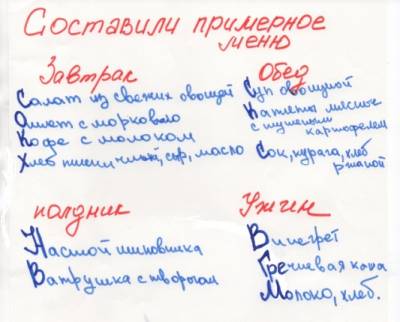 Составили примерное
меню
Завтрак
Салат из свежих овощей
Омлет с морковью
Кофе с молоком
Хлеб пшеничный, сыр, масло
Обед
Суп овощной
Котлеты мясные
с тушеным
картофелем
Сок, курага, хлеб
ржаной
полдник
Настой шиповника
Ватрушка с творогом
Ужин
Винегрет
Гречневая каша
Молоко, хлеб.